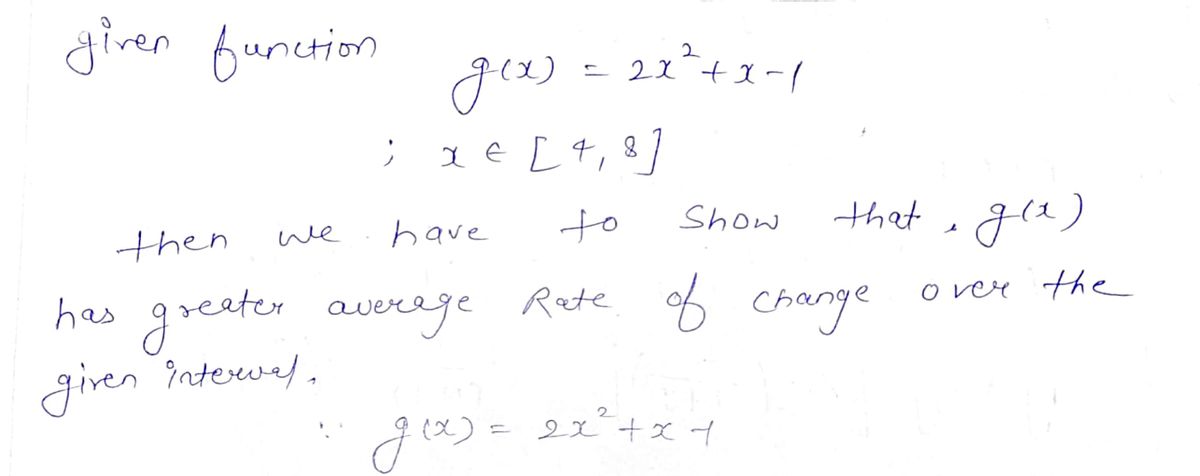 given function
g(x) = 2x²+x-1
; x ∈ [4, 8]
then we have to show that, g(x)
has greater average Rate of change over the
given interval.
∵ g(x) = 2x²+x-1